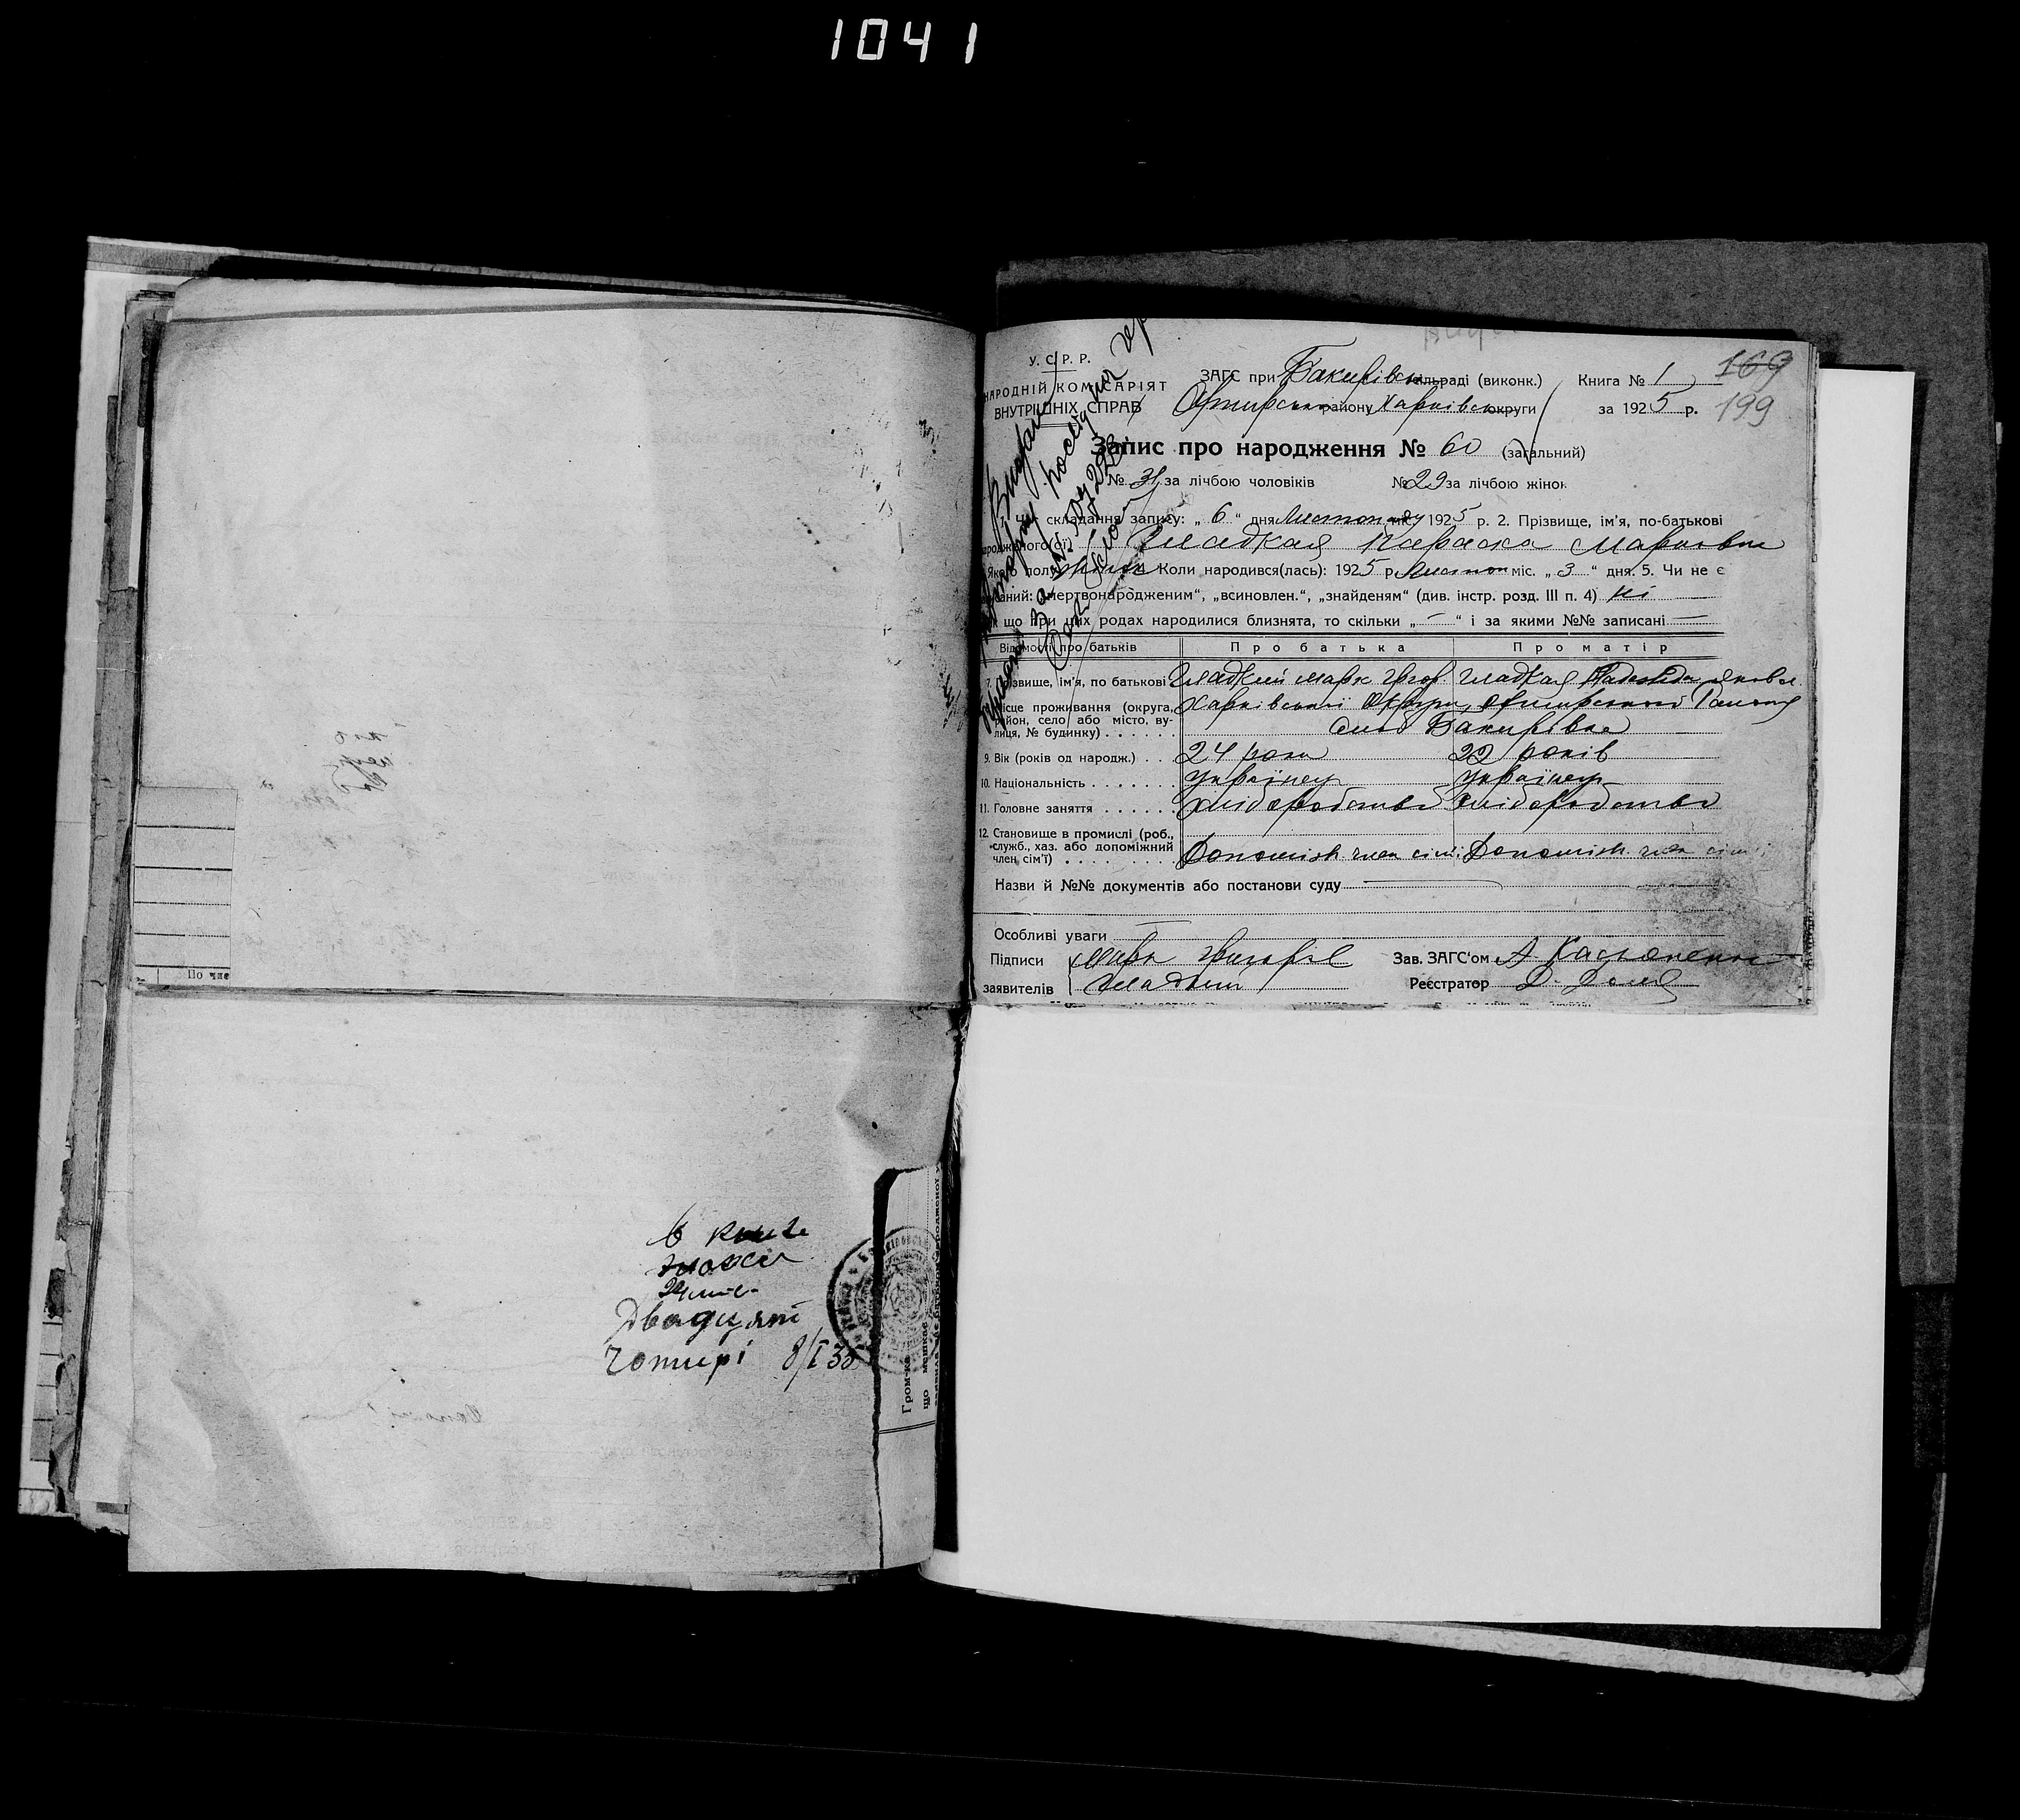 1041
По чле
в книзі
24 лист
Двадцять
Чотирі 8/I 35
Гром-ка
що мешкає
У. С. Р. Р.
НАРОДНІЙ КОМІСАРІЯТ
ВНУТРІШНІХ СПРАВ
ЗАГС при Бакирівськ сільраді (виконк.) Книга № 1 169
району Харківськ округи за 1925 р. 199
Запис про народження № 60 (загальний)
№ 31 за лічбою чоловіків № 29 за лічбою жінок
Час складання запису: „ 6 “ дня Листопаду 1925 р. 2. Прізвище, ім’я, по-батькові
народженого(ої) Гладкая Параска Марковна
Якого полу жіноч 4. Коли народився(лась): 1925 р. Листоп міс. „ 3 “ дня. 5. Чи не є
„мертвонародженим“, „всиновлен.“, „знайденям“ (див. інстр. розд. III п. 4) ні
що при цих родах народилися близнята, то скільки „ – “ і за якими №№ записані —
Видано
повторну
за №
Відомості про батьків Про батька Про матір
7. Прізвище, ім’я, по батькові Гладкий Марк Григор. Гладкая Надежда Яковл
місце проживання (округа, район, село або місто, вулиця, № будинку) Харківської Округи, Району
слоб Бакирівка
9. Вік (років од народж.) 24 роки 22 років
10. Національність Українец Українец
11. Головне заняття хліборобство хліборобство
12. Становище в промислі (роб., служб., хаз. або допоміжний член сім’ї) Допоміжн. член сім'ї Допоміжн. член сім'ї
Назви й №№ документів або постанови суду
Особливі уваги
Підписи Марк Григорів Зав. ЗАГС’ом А. Касьяненко
заявителів Гладкий Реєстратор Д.